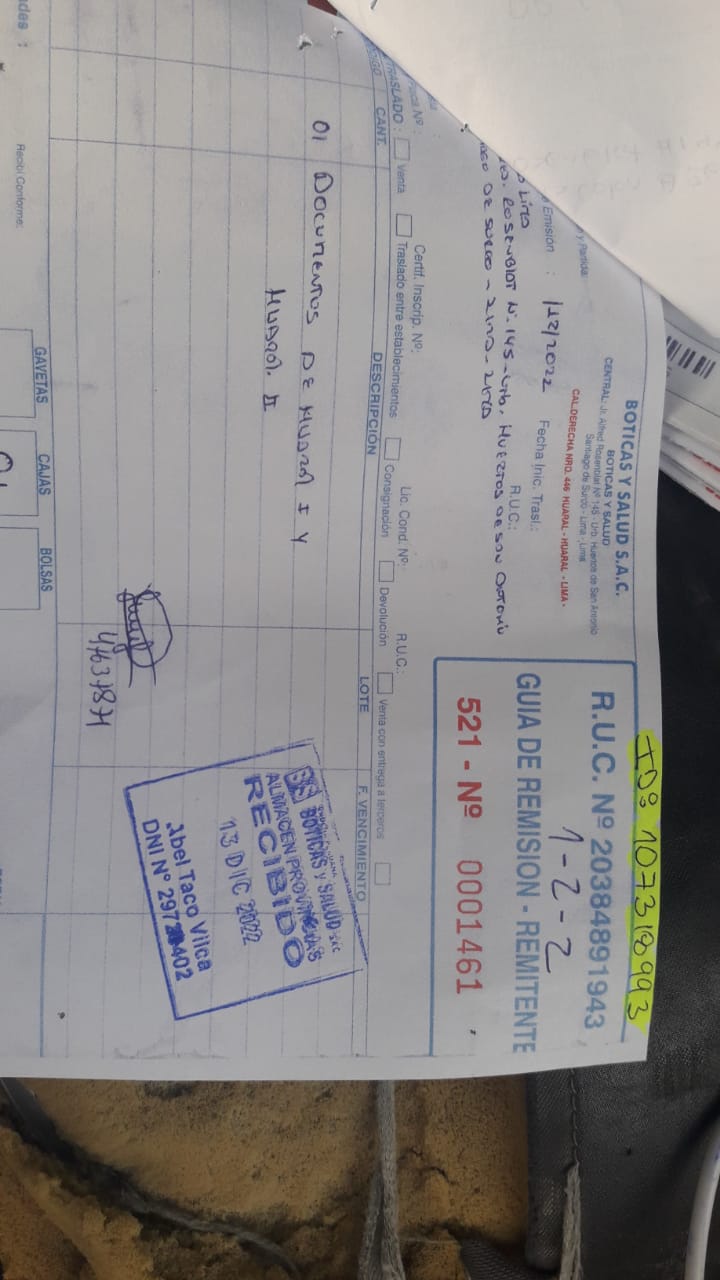 ID: 107318993
BOTICAS Y SALUD S.A.C.
BOTICAS Y SALUD
CENTRAL: Jr. Alfred Rosenblat Nº 145 - Urb. Huertos de San Antonio
Santiago de Surco - Lima - Lima
CAL.DERECHA NRO. 446 HUARAL - HUARAL - LIMA -
R.U.C. Nº 20384891943
1-2-2
GUIA DE REMISION - REMITENTE
521 - Nº 0001461
y Partida:
Emisión : 12/2022 Fecha Inic. Trasl.:
R.U.C.:
ROSENBLAT N. 145 - Urb. HUERTOS DE SAN ANTONIO
DE SURCO - LIMA - LIMA
Placa Nº : Certif. Inscrip. Nº: Lic. Cond. Nº: R.U.C.:
TRASLADO : Venta Traslado entre establecimientos Consignación Devolución Venta con entrega a terceros
CANT. DESCRIPCIÓN LOTE F. VENCIMIENTO
01 Documentos DE HUARAL I Y
HUARAL II
BS BOTICAS Y SALUD SAC
ALMACEN PROVINCIAS
RECIBIDO
13 DIC 2022
Abel Taco Vilca
GAVETAS CAJAS BOLSAS
Recibí Conforme: